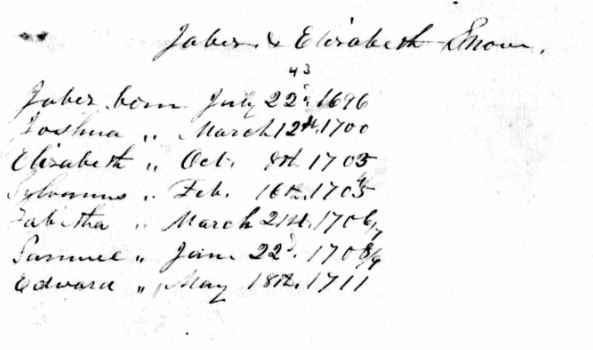 Jabez & Elizabeth Snow.
43
Jabez born July 22d, 1696
Joshua " March 12th, 1700
Elizabeth " Oct. 8th, 1703
Sylvanus " Feb. 16th, 1704/5
Tabitha " March 21st, 1706/7
Samuel " Jan. 22d, 1708/9
Edward " May 18th, 1711